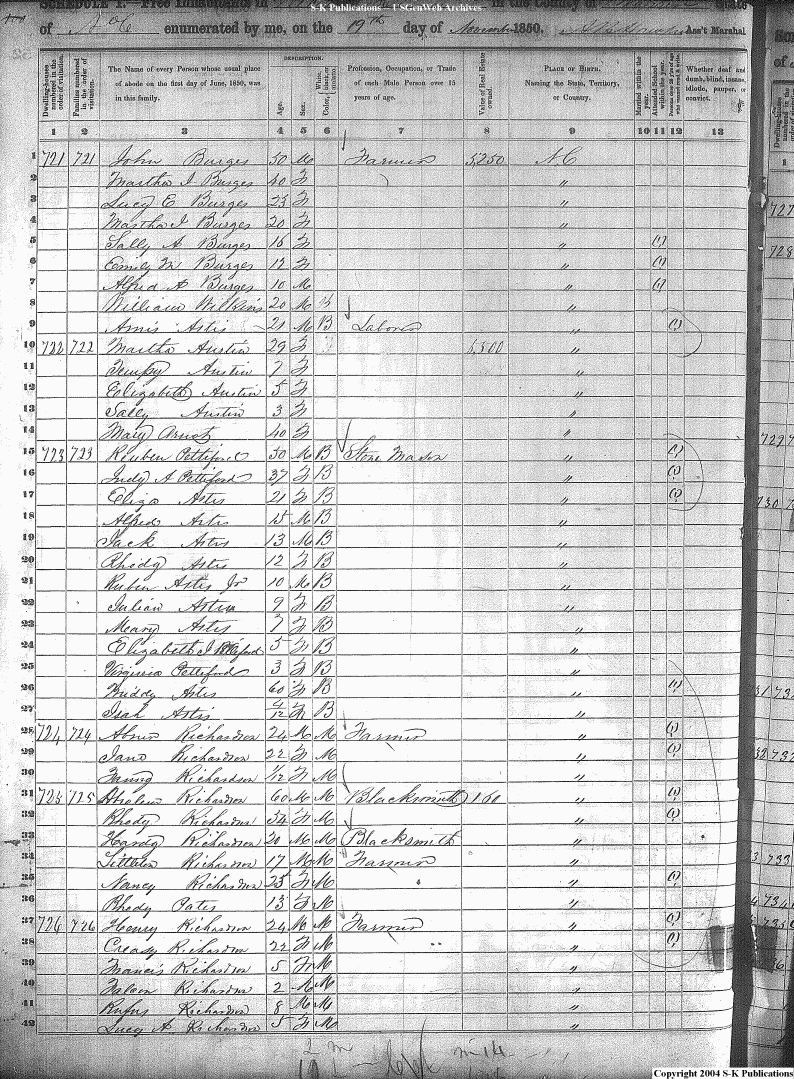 S-K Publications - USGenWeb Archives
SCHEDULE I.—Free Inhabitants in in the County of State
of N C enumerated by me, on the 19th day of November 1850. Ass't Marshal
Dwelling-houses numbered in the order of visitation.
Families numbered in the order of visitation.
The Name of every Person whose usual place of abode on the first day of June, 1850, was in this family.
DESCRIPTION.
Age.
Sex.
White, black, or mulatto.
Color,
Profession, Occupation, or Trade of each Male Person over 15 years of age.
Value of Real Estate owned.
PLACE OF BIRTH.
Naming the State, Territory, or Country.
Married within the year.
Attended School within the year.
Whether deaf and dumb, blind, insane, idiotic, pauper, or convict.
1 2 3 4 5 6 7 8 9 10 11 12 13
1 721 721 John Burges 50 M Farmer 5250 N C
2 Martha I Burges 40 F "
3 Lucy E Burges 23 F "
4 Martha I Burges 20 F "
5 Sally A Burges 16 F " (1)
6 Emily M Burges 12 F " (1)
7 Alfred A Burges 10 M " (1)
8 William Wilkins 20 M "
9 Amis Artis 21 M B Laborer " (1)
10 722 722 Martha Austin 29 F 5,500 "
11 Tempy Austin 7 F "
12 Elizabeth Austin 5 F "
13 Sally Austin 3 F "
14 Mary 40 F "
15 723 723 Reuben Pettiford 30 M B Stone Mason " (1)
16 Judy A Pettiford 37 F B " (1)
17 Eliza Artis 21 F B " (1)
18 Alfred Artis 15 M B "
19 Jack Artis 13 M B "
20 Rhody Artis 12 F B "
21 Ruben Artis Jr 10 M B "
22 Julian Artis 9 F B "
23 Meary Artis 7 F B "
24 Elizabeth J Pettiford 5 F B "
25 Virginia Pettiford 3 F B "
26 Artis 60 F B " (1)
27 Artis F B "
28 724 724 Abner Richardson 24 M M Farmer " (1)
29 Jane Richardson 22 F M " (1)
30 Richardson F M "
31 725 725 Richardson 60 M M Blacksmith 160 " (1)
32 Rhody Richardson 54 F M " (1)
33 Hardy Richardson 20 M M Blacksmith "
34 Richardson 17 M M Farmer "
35 Nancy Richardson 25 F M " (1)
36 Rhody 13 F M "
37 726 726 Henry Richardson 24 M M Farmer " (1)
38 Creasy Richardson 22 F M " (1)
39 Francis Richardson 5 F M "
40 Richardson 2 M M "
41 Rufus Richardson 8 M M "
42 Lucy A Richardson 5 F M "
Copyright 2004 S-K Publications